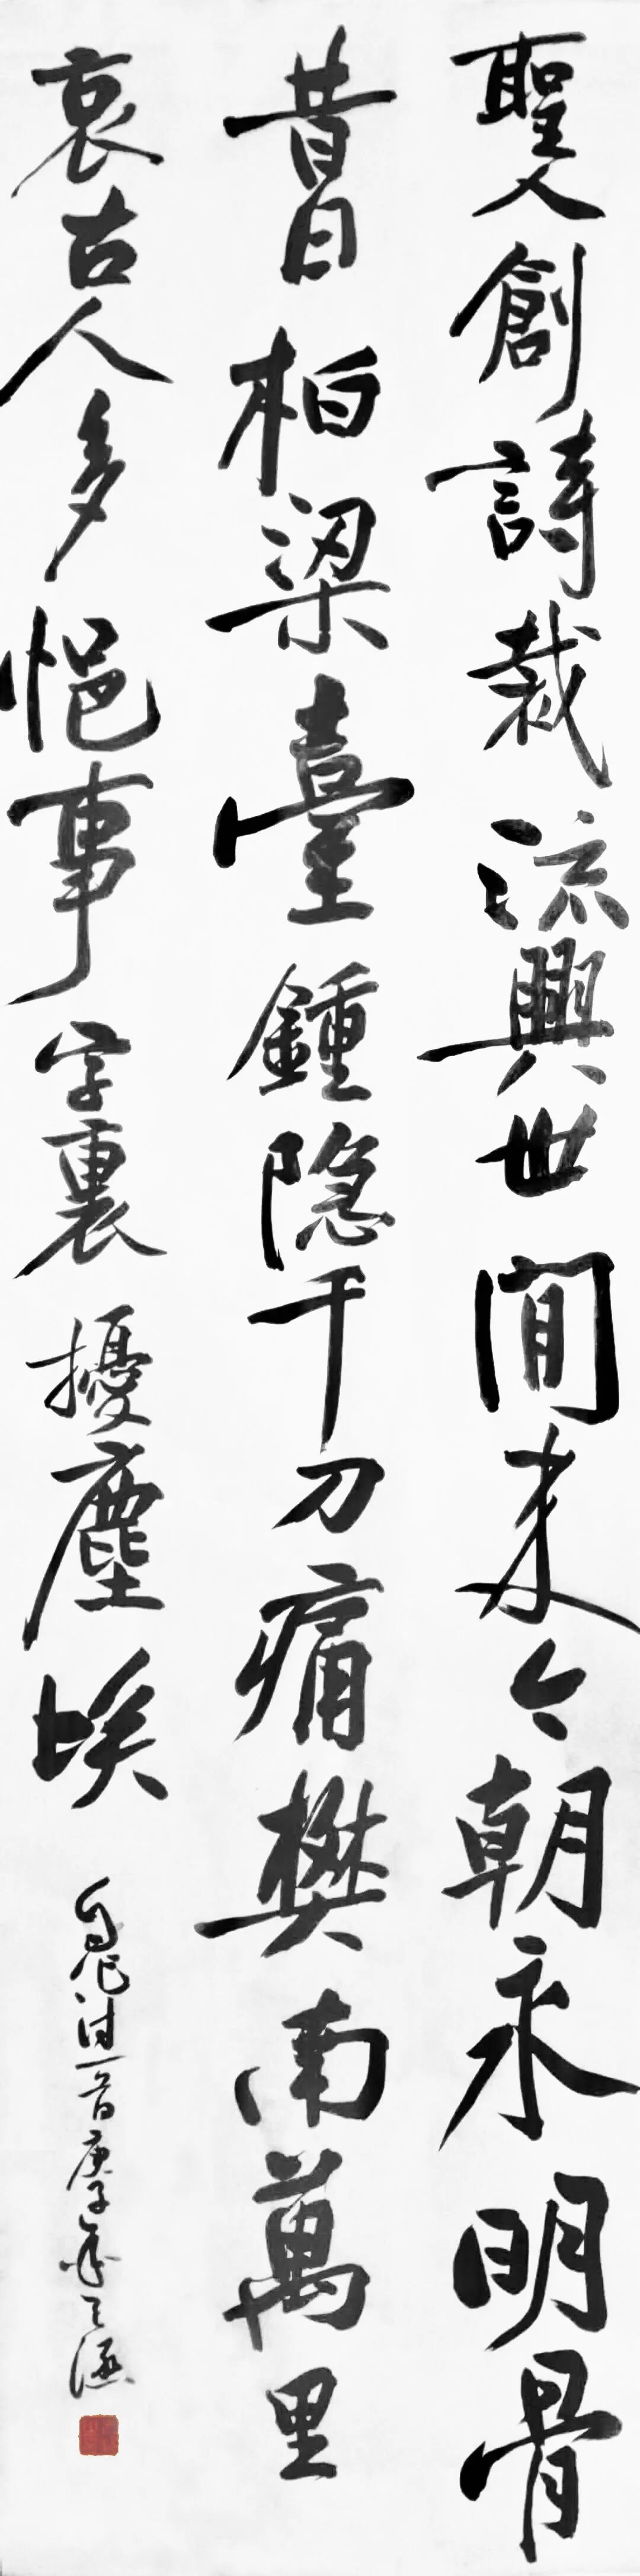 聖人創詩裁流興世間來今朝永明骨
昔日柏梁臺鍾隐千刀痛樊南萬里
哀古人多悒事字裏擾塵埃
自作诗一首庚子年